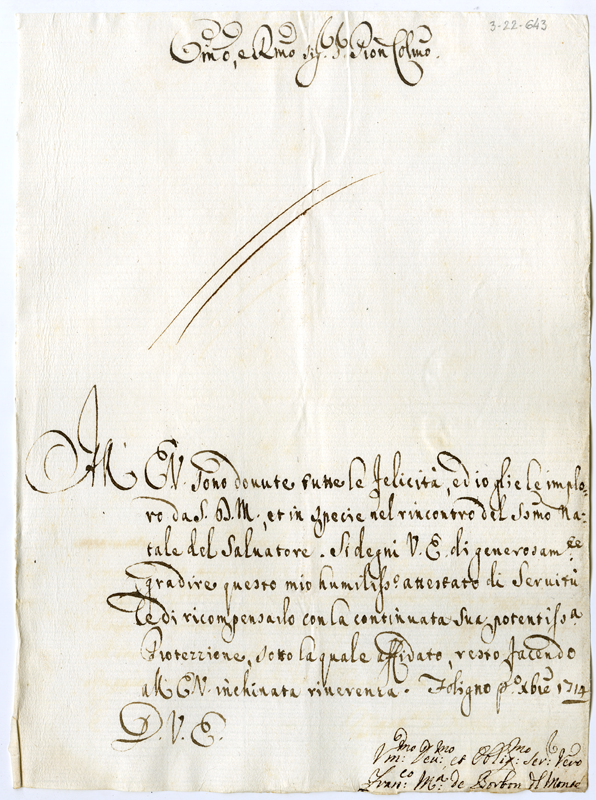 3-22-643
Emo, e Rmo Sig.r P.ron Colmo.
All' E.V. sono douute tutte le felicità, ed io glie le implo-
ro da S. D. M., et in specie nel rincontro del Ssmo Na-
tale del Saluatore. Si degni V. E. di generosam.te
gradire questo mio humiliss.o attestato di Seruitù
e di ricompensarlo con la continuata sua potentiss.a
Protezzione, sotto la quale affidato, resto facendo
all' E.V. inchinata riuerenza. Foligno p.o Xbre 1714
D. V. E.
Vm.mo Deu.mo et Obblig.mo Ser.r Vero
Fran.co M.a de Borbon del Monte